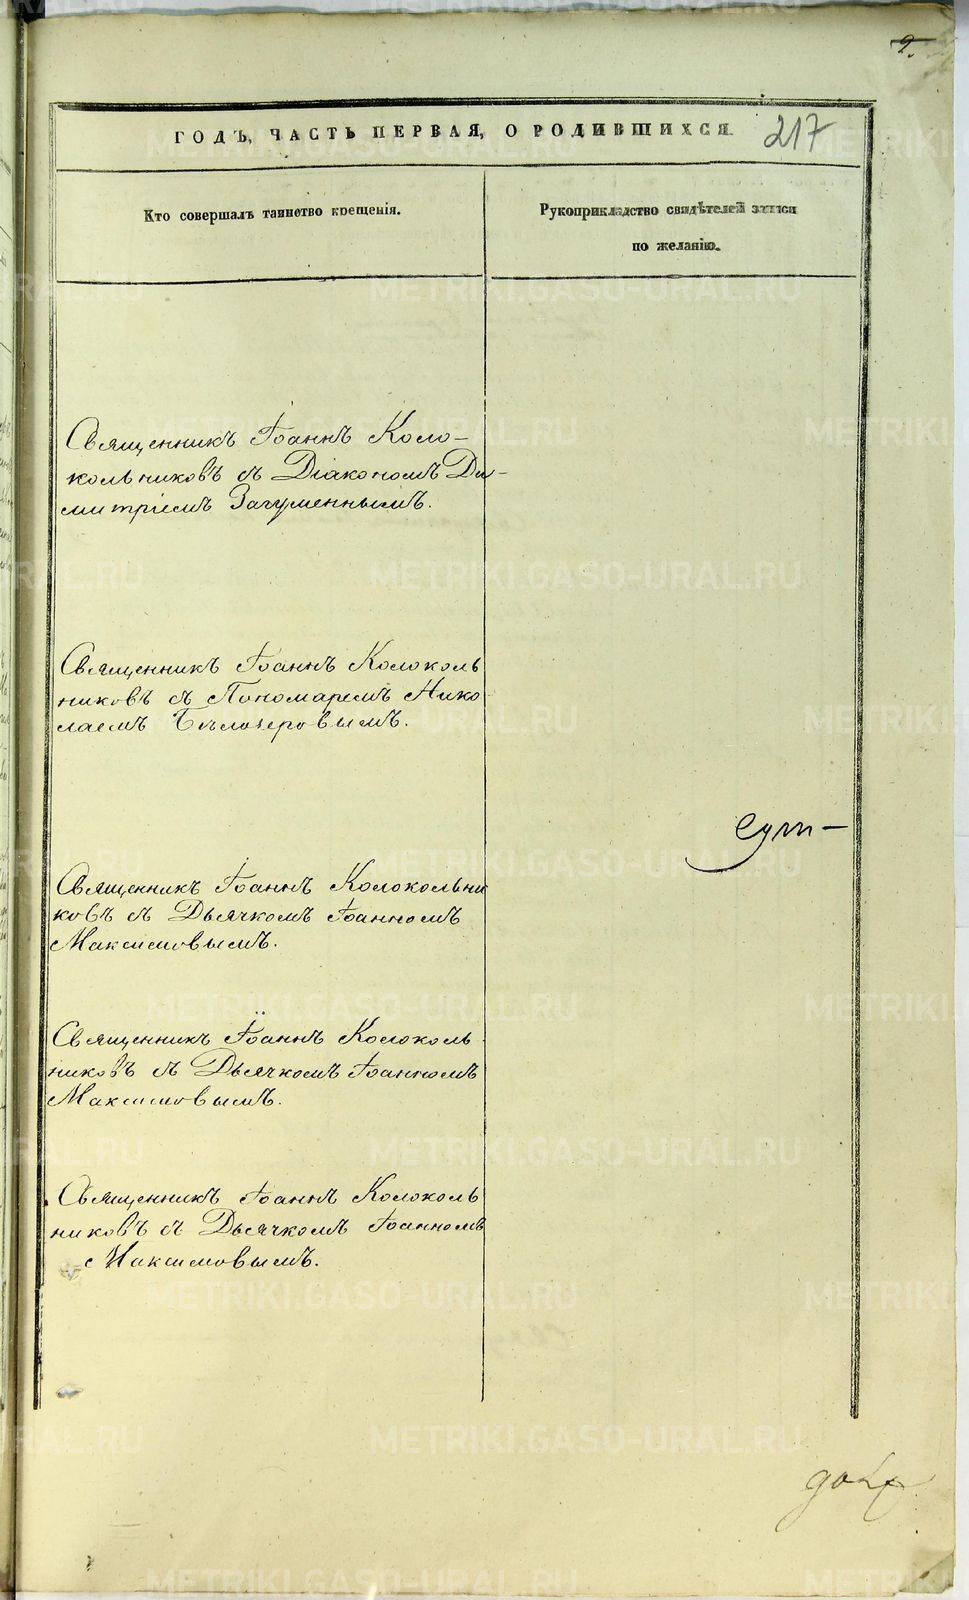 2.
217
ГОДЪ, ЧАСТЬ ПЕРВАЯ, О РОДИВШИХСЯ.
Кто совершалъ таинство крещенія.
Рукоприкладство свидѣтелей записи
по желанію.
Священникъ Іоаннъ Коло-
кольниковъ съ Діакономъ Ди-
митріемъ Загуменнымъ.
Священникъ Іоаннъ Колоколь
никовъ съ Пономаремъ Нико
лаемъ Бѣлозеровымъ.
Священникъ Іоаннъ Колокольни
ковъ съ Дьячкомъ Іоанномъ
Максимовымъ.
Священникъ Іоаннъ Колоколь
никовъ съ Дьячкомъ Іоанномъ
Максимовымъ.
Священникъ Іоаннъ Колоколь
никовъ съ Дьячкомъ Іоанномъ
Максимовымъ.
METRIKI.GASO-URAL.RU